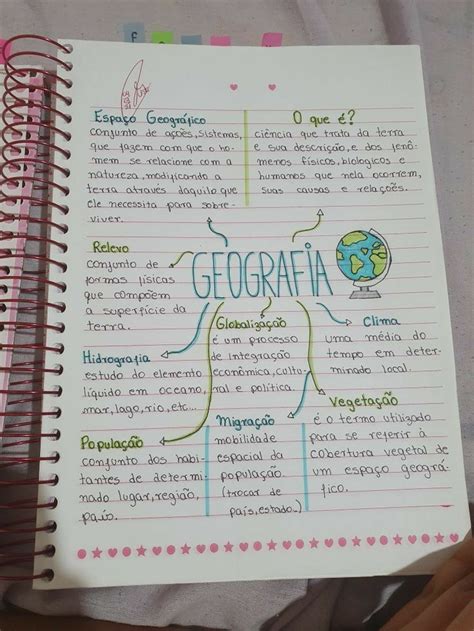 Espaço Geográfico
conjunto de ações, sistemas,
que fazem com que o ho-
mem se relacione com a
natureza, modificando a
terra através daquilo que
ele necessita para sobre-
viver.
O que é?
ciência que trata da terra
e sua descrição, e dos fenô-
menos físicos, biologicos e
humanos que nela ocorrem,
suas causas e relações.
Relevo
conjunto de
formas físicas
que compõem
a superfície da
terra.
GEOGRAFIA
Globalização
é um processo
de integração
econômica, cultu-
ral e política.
Clima
uma média do
tempo em deter-
minado local.
Hidrografia
estudo do elemento
líquido em oceano,
mar, lago, rio, etc...
Vegetação
é o termo utilizado
para se referir à
cobertura vegetal de
um espaço geográ-
fico.
Migração
mobilidade
espacial da
população.
(trocar de
país, estado..)
População
conjunto dos habi-
tantes de determi-
nado lugar, região,
país.